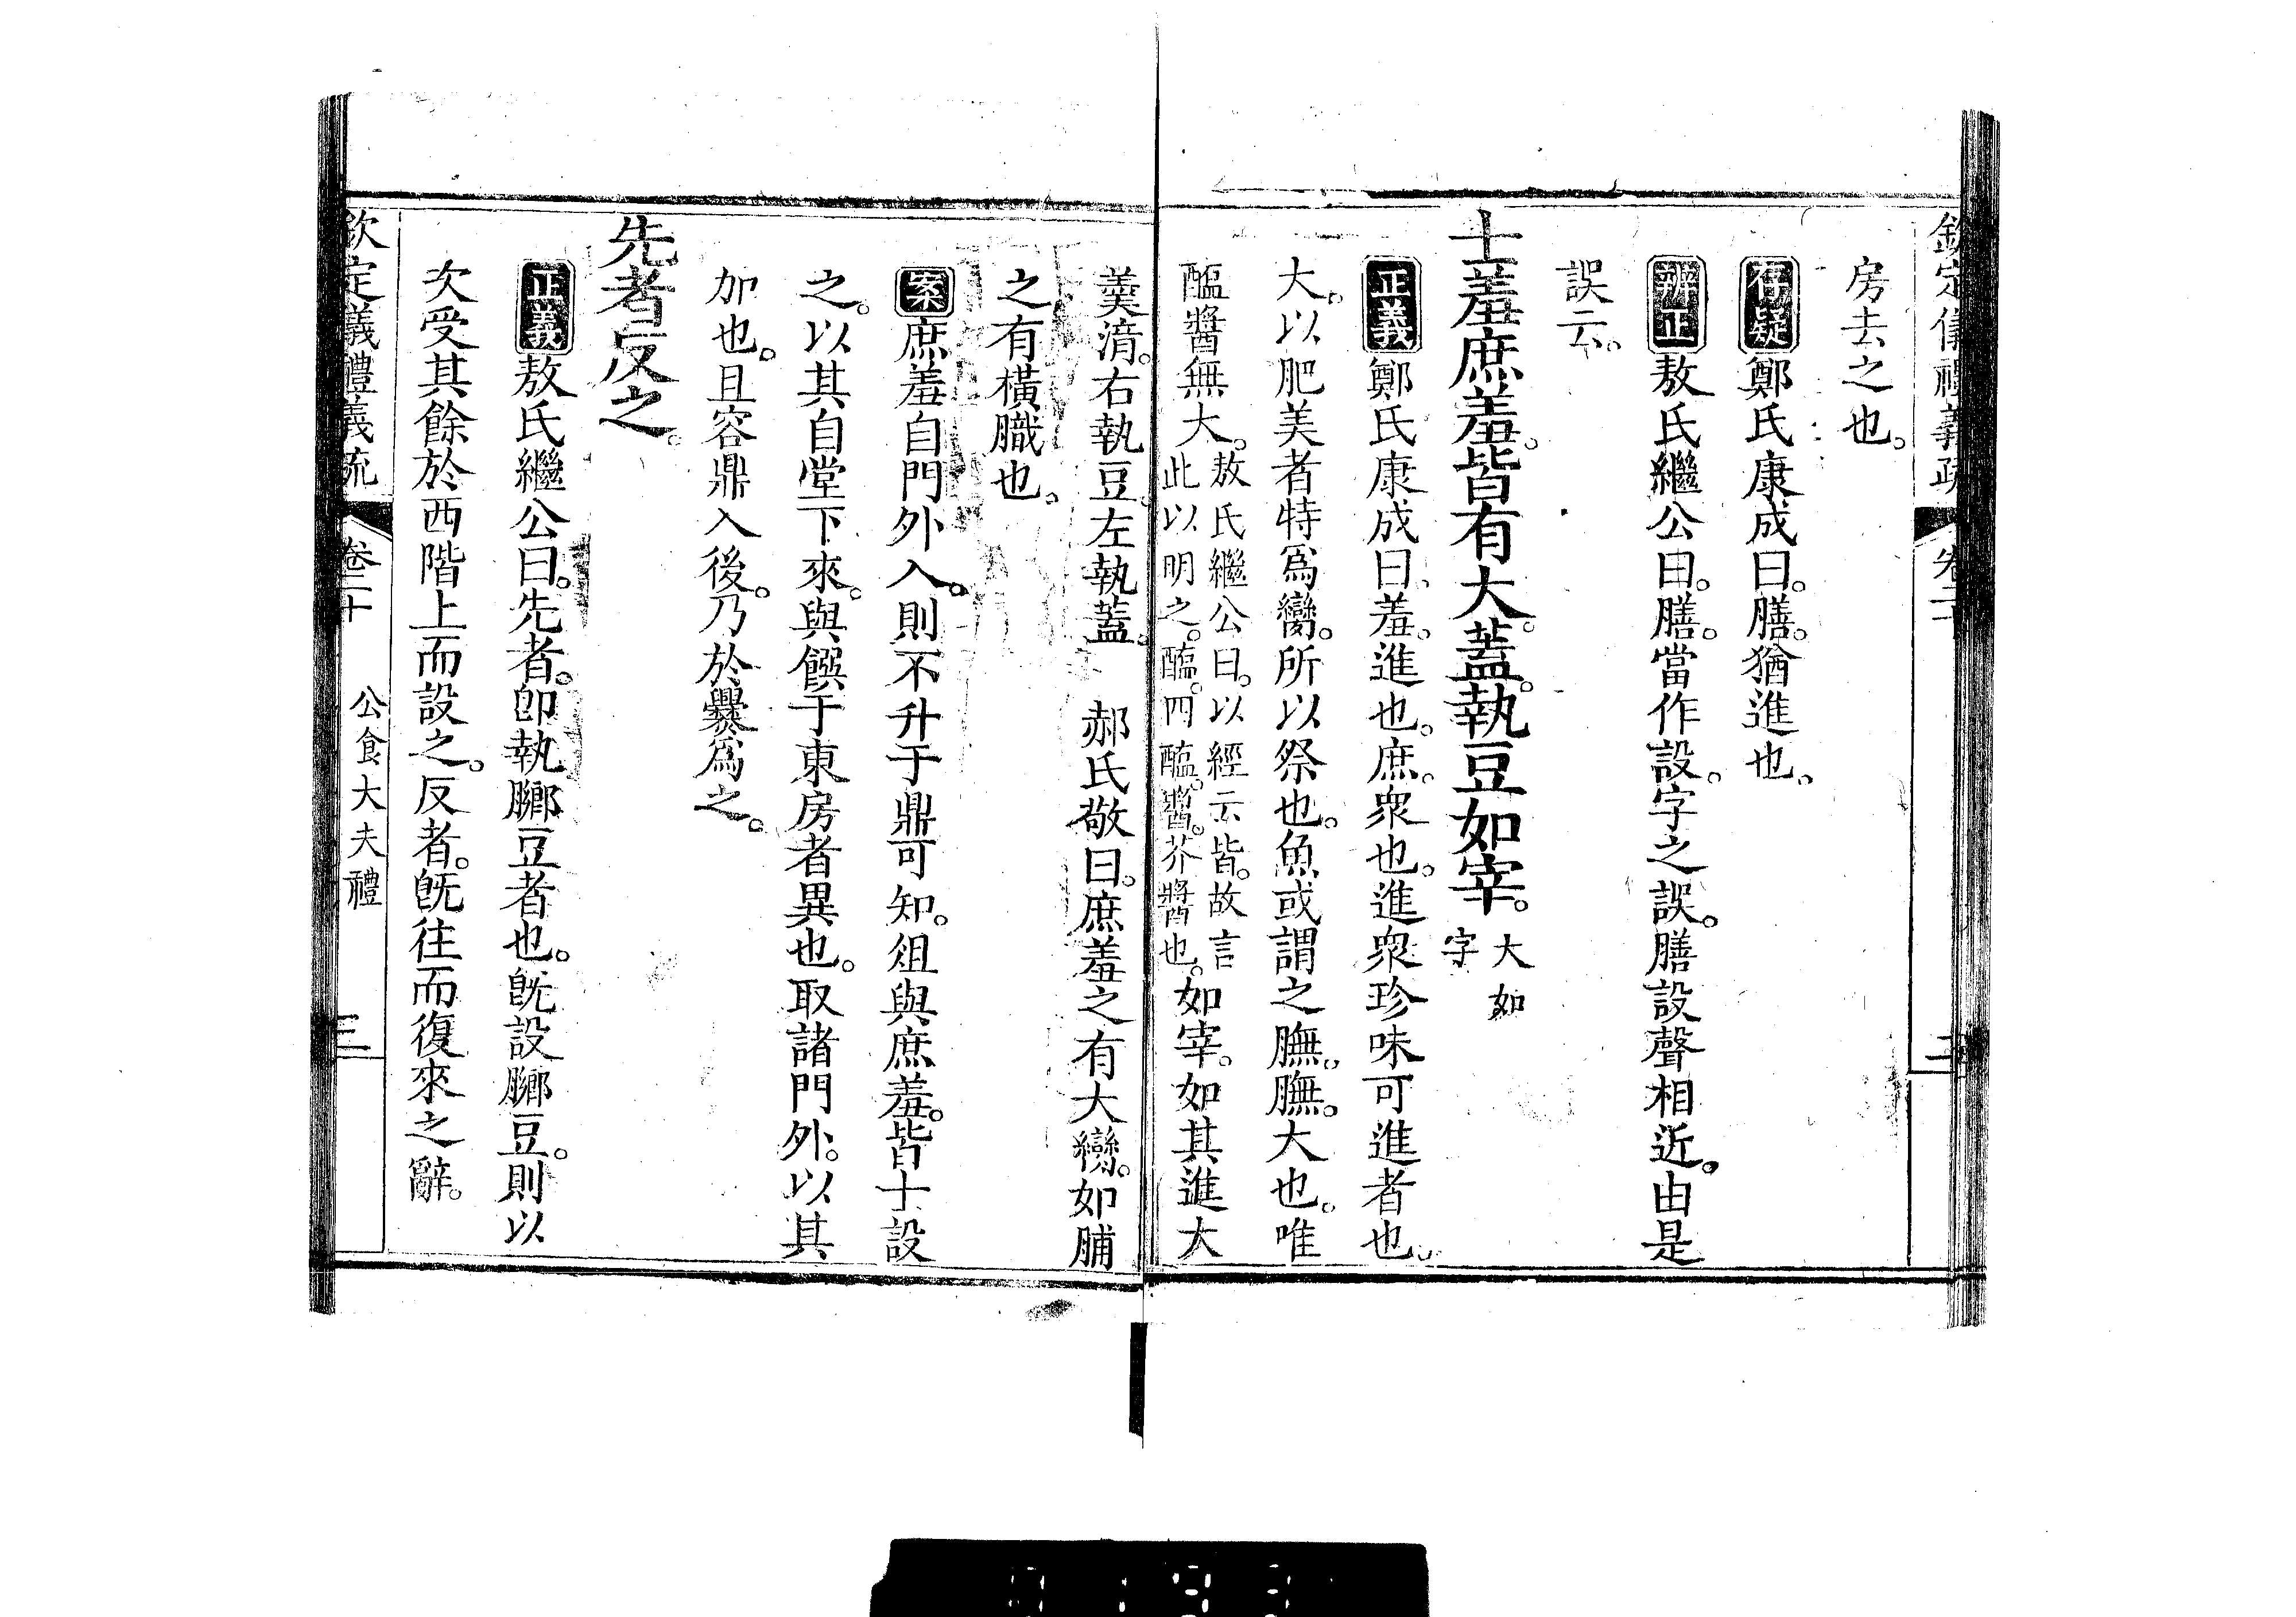 欽定儀禮義疏 卷二十 二
房去之也。
存疑鄭氏康成曰。膳。猶進也。
辨正敖氏繼公曰。膳。當作設。字之誤。膳設聲相近。由是
誤云。
士羞庶羞。皆有大。蓋。執豆如宰。大如字
正義鄭氏康成曰。羞。進也。庶。衆也。進衆珍味可進者也。
大。以肥美者特爲臠。所以祭也。魚或謂之膴。膴。大也。唯
醢醬無大。敖氏繼公曰。以經云皆。故言此以明之。醢。四醢。醬。芥醬也。如宰。如其進大
羹湆。右執豆。左執蓋。 郝氏敬曰。庶羞之有大臠。如脯
之有橫膱也。
案庶羞自門外入。則不升于鼎可知。俎與庶羞。皆士設
之。以其自堂下來。與饌于東房者異也。取諸門外。以其
加也。且容鼎入後。乃於爨爲之。
先者反之。
正義敖氏繼公曰。先者。卽執膷豆者也。旣設膷豆。則以
次受其餘於西階上而設之。反者。旣往而復來之辭。
欽定儀禮義疏 卷二十 公食大夫禮 三